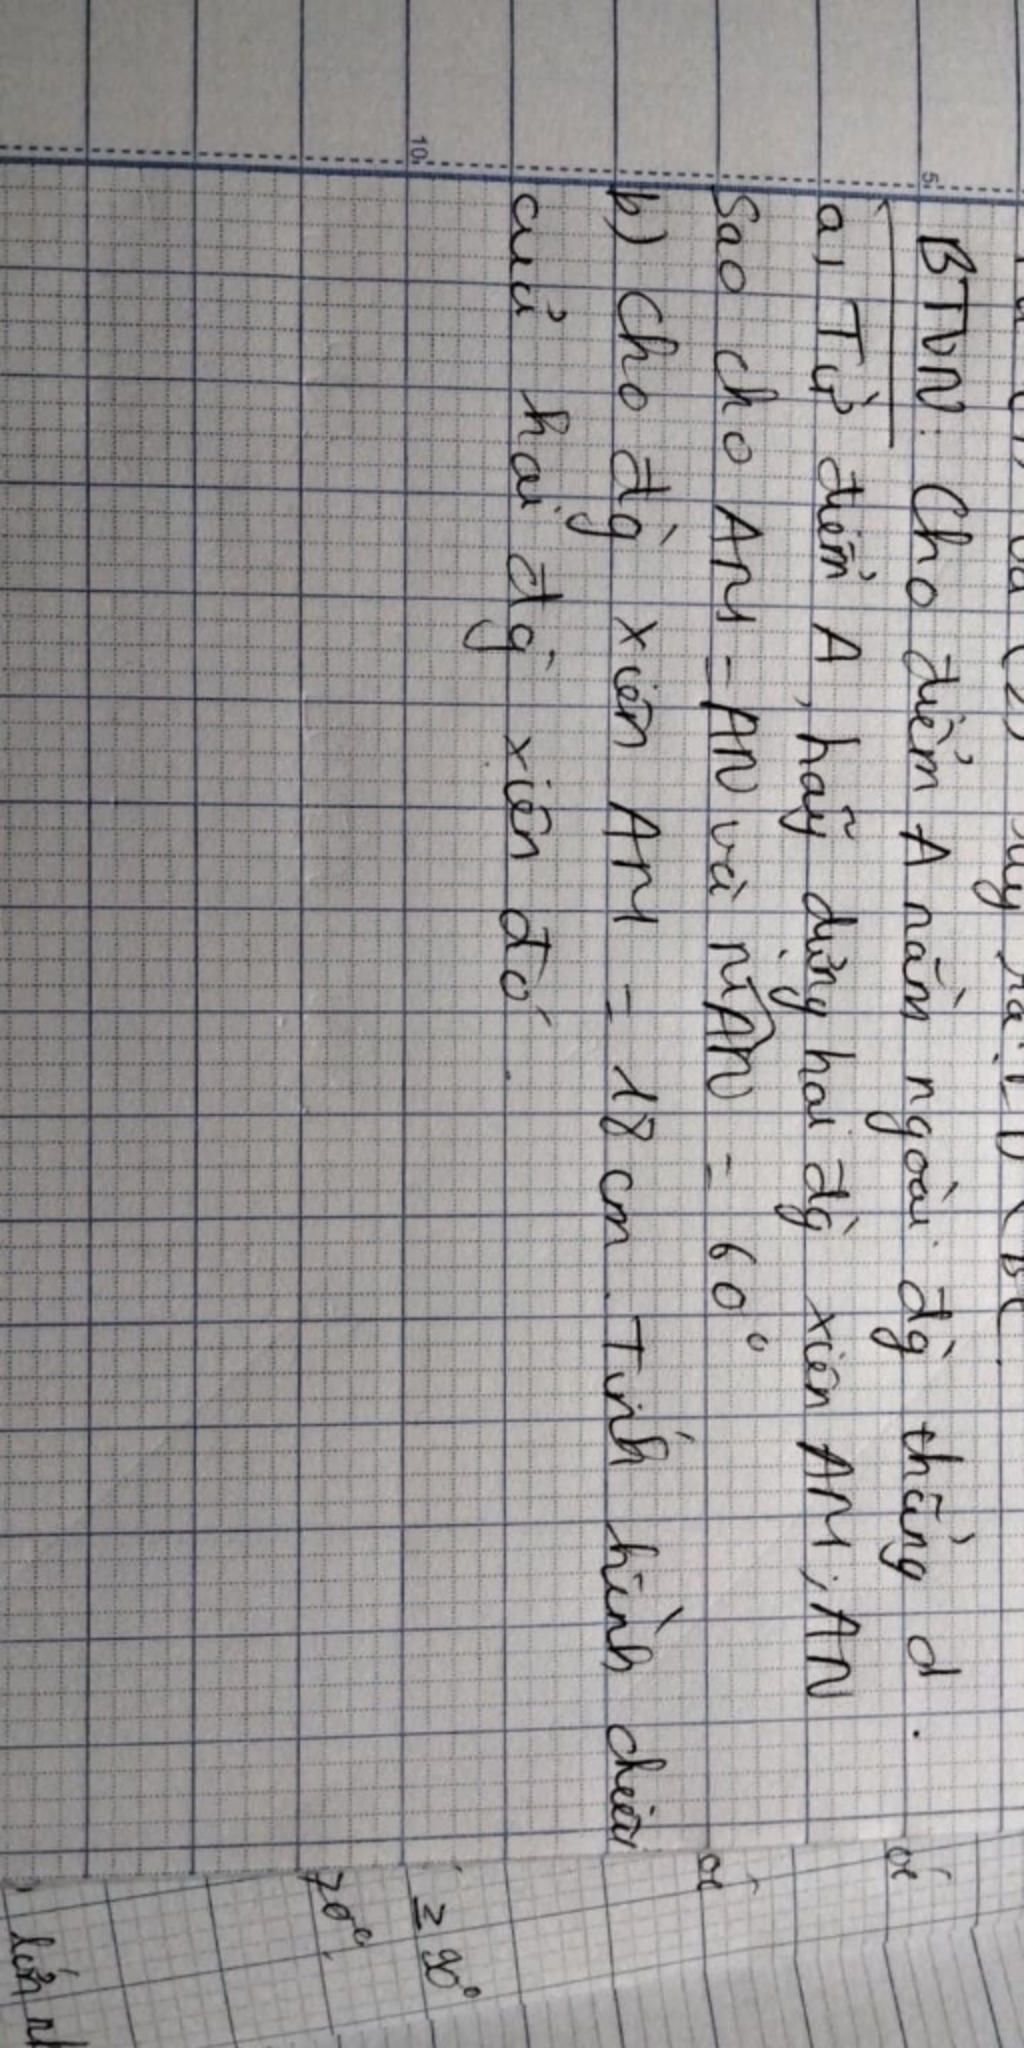 BTVN: Cho điểm A nằm ngoài đg` thẳng d.
a, Từ điểm A, hãy dựng hai đg` xiên AM, AN
Sao cho AM = AN và MAN = 60°
b) Cho đg` xiên AM = 18 cm. Tính hình chiếu
của hai đg` xiên đó.
5
10
≥ 90°
70°
lớn